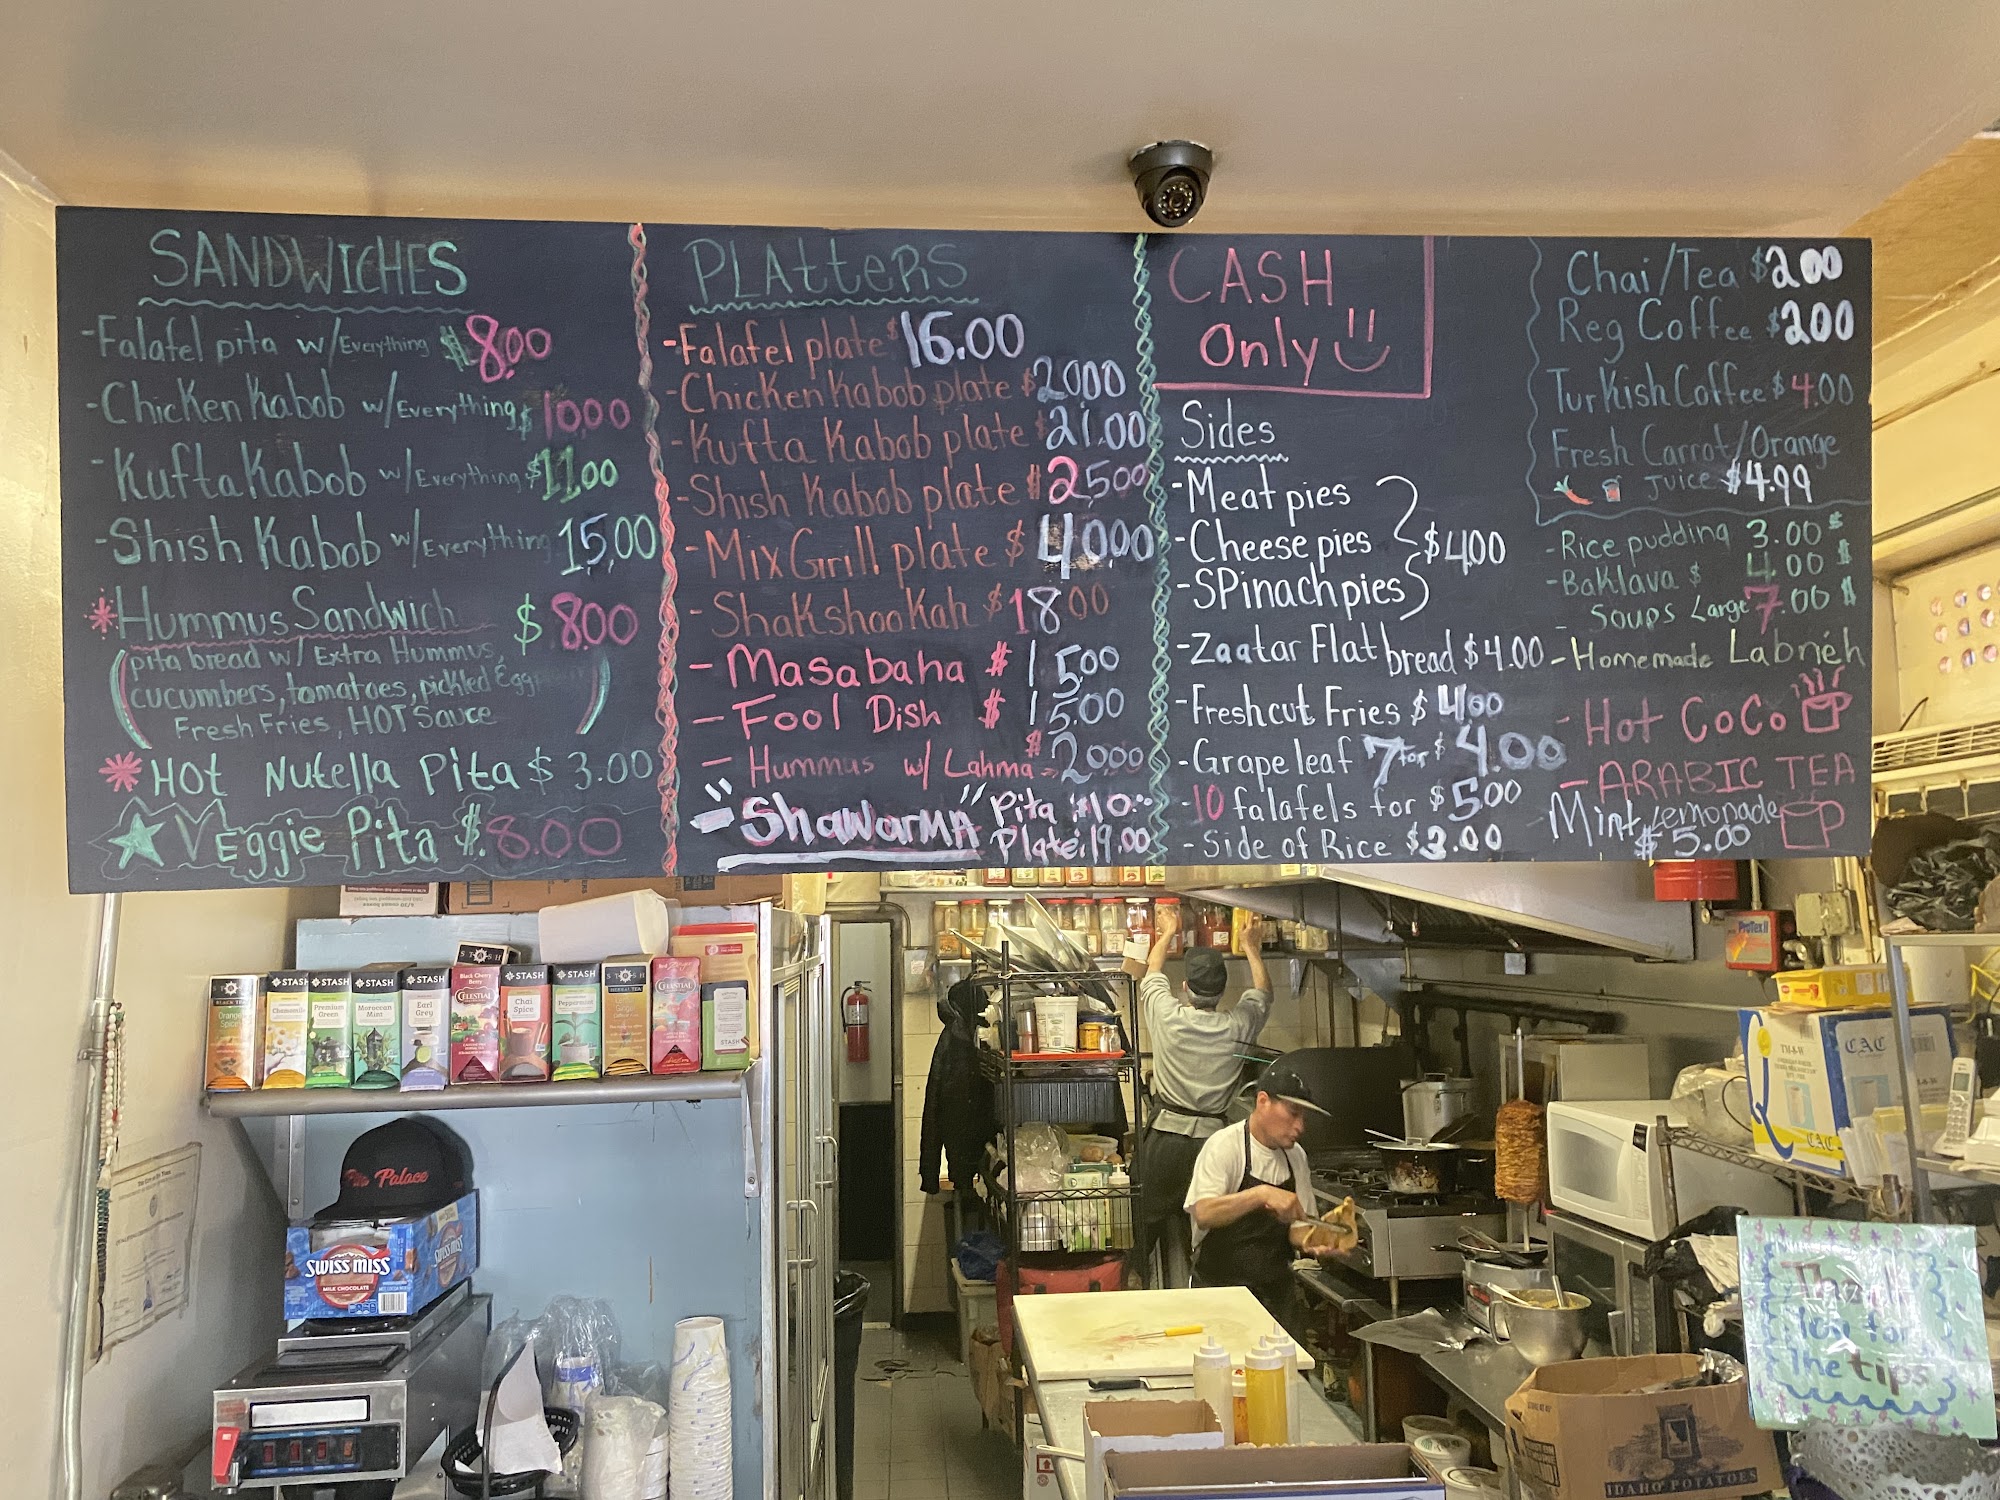 SANDWICHES
-Falafel pita w/Everything $8.00
-Chicken Kabob w/Everything $10.00
-Kufta Kabob w/Everything $11.00
-Shish Kabob w/Everything 15.00
*Hummus Sandwich $8.00
(pita bread w/ Extra Hummus,
cucumbers, tomatoes, pickled Egg
Fresh Fries, HOT Sauce)
*HOT Nutella Pita $3.00
Veggie Pita $8.00
PLAtteRS
-Falafel plate $16.00
-Chicken Kabob plate $20.00
-Kufta Kabob plate $21.00
-Shish Kabob plate $25.00
-Mix Grill plate $40.00
-Shakshookah $18.00
-Masabaha $15.00
-Fool Dish $15.00
-Hummas w/ Lahma $20.00
-"ShawarMA" Pita $10.00
Plate 19.00
CASH
Only
Sides
-Meat pies
-Cheese pies $4.00
-SPinach pies
-Zaatar Flat bread $4.00
-Freshcut Fries $4.00
-Grape leaf 7 for $4.00
-10 falafels for $5.00
-Side of Rice $3.00
Chai/Tea $2.00
Reg Coffee $2.00
Turkish Coffee $4.00
Fresh Carrot/Orange
Juice $4.99
-Rice pudding 3.00$
-Baklava $ 4.00$
- Soups Large 7.00$
-Homemade Labneh
-Hot CoCo
-ARABIC TEA
Mint Lemonade
$5.00
STASH
STASH
STASH
STASH
STASH
STASH
STASH
STASH
Orange Spice
Chamomile
Premium Green
Moroccan Mint
Earl Grey
Black Cherry Berry
CELESTIAL
Chai Spice
Peppermint
CELESTIAL
STASH
Palace
SWISS MISS
MILK CHOCOLATE
SWISS MISS
ProTex II
TM-8-W
CAC
CAC
Thank
You for
The tips
IDAHO POTATOES